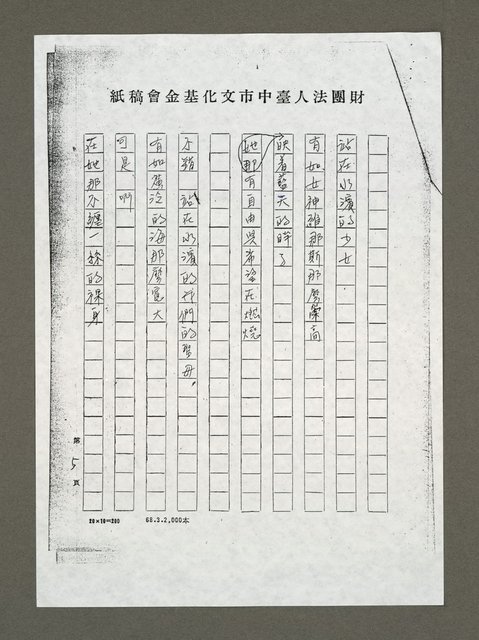 財團法人臺中市文化基金會稿紙
站在水濱的少女
有如女神維那斯那麼崇高
映着藍天的眸子
她那有自由與希望在燃燒
不錯 站在水濱的我們的聖母
有如廣泛的海那麼寬大
可是 啊
在她那不纏一絲的裸身
第5頁
20×10=200
68.3.2,000本